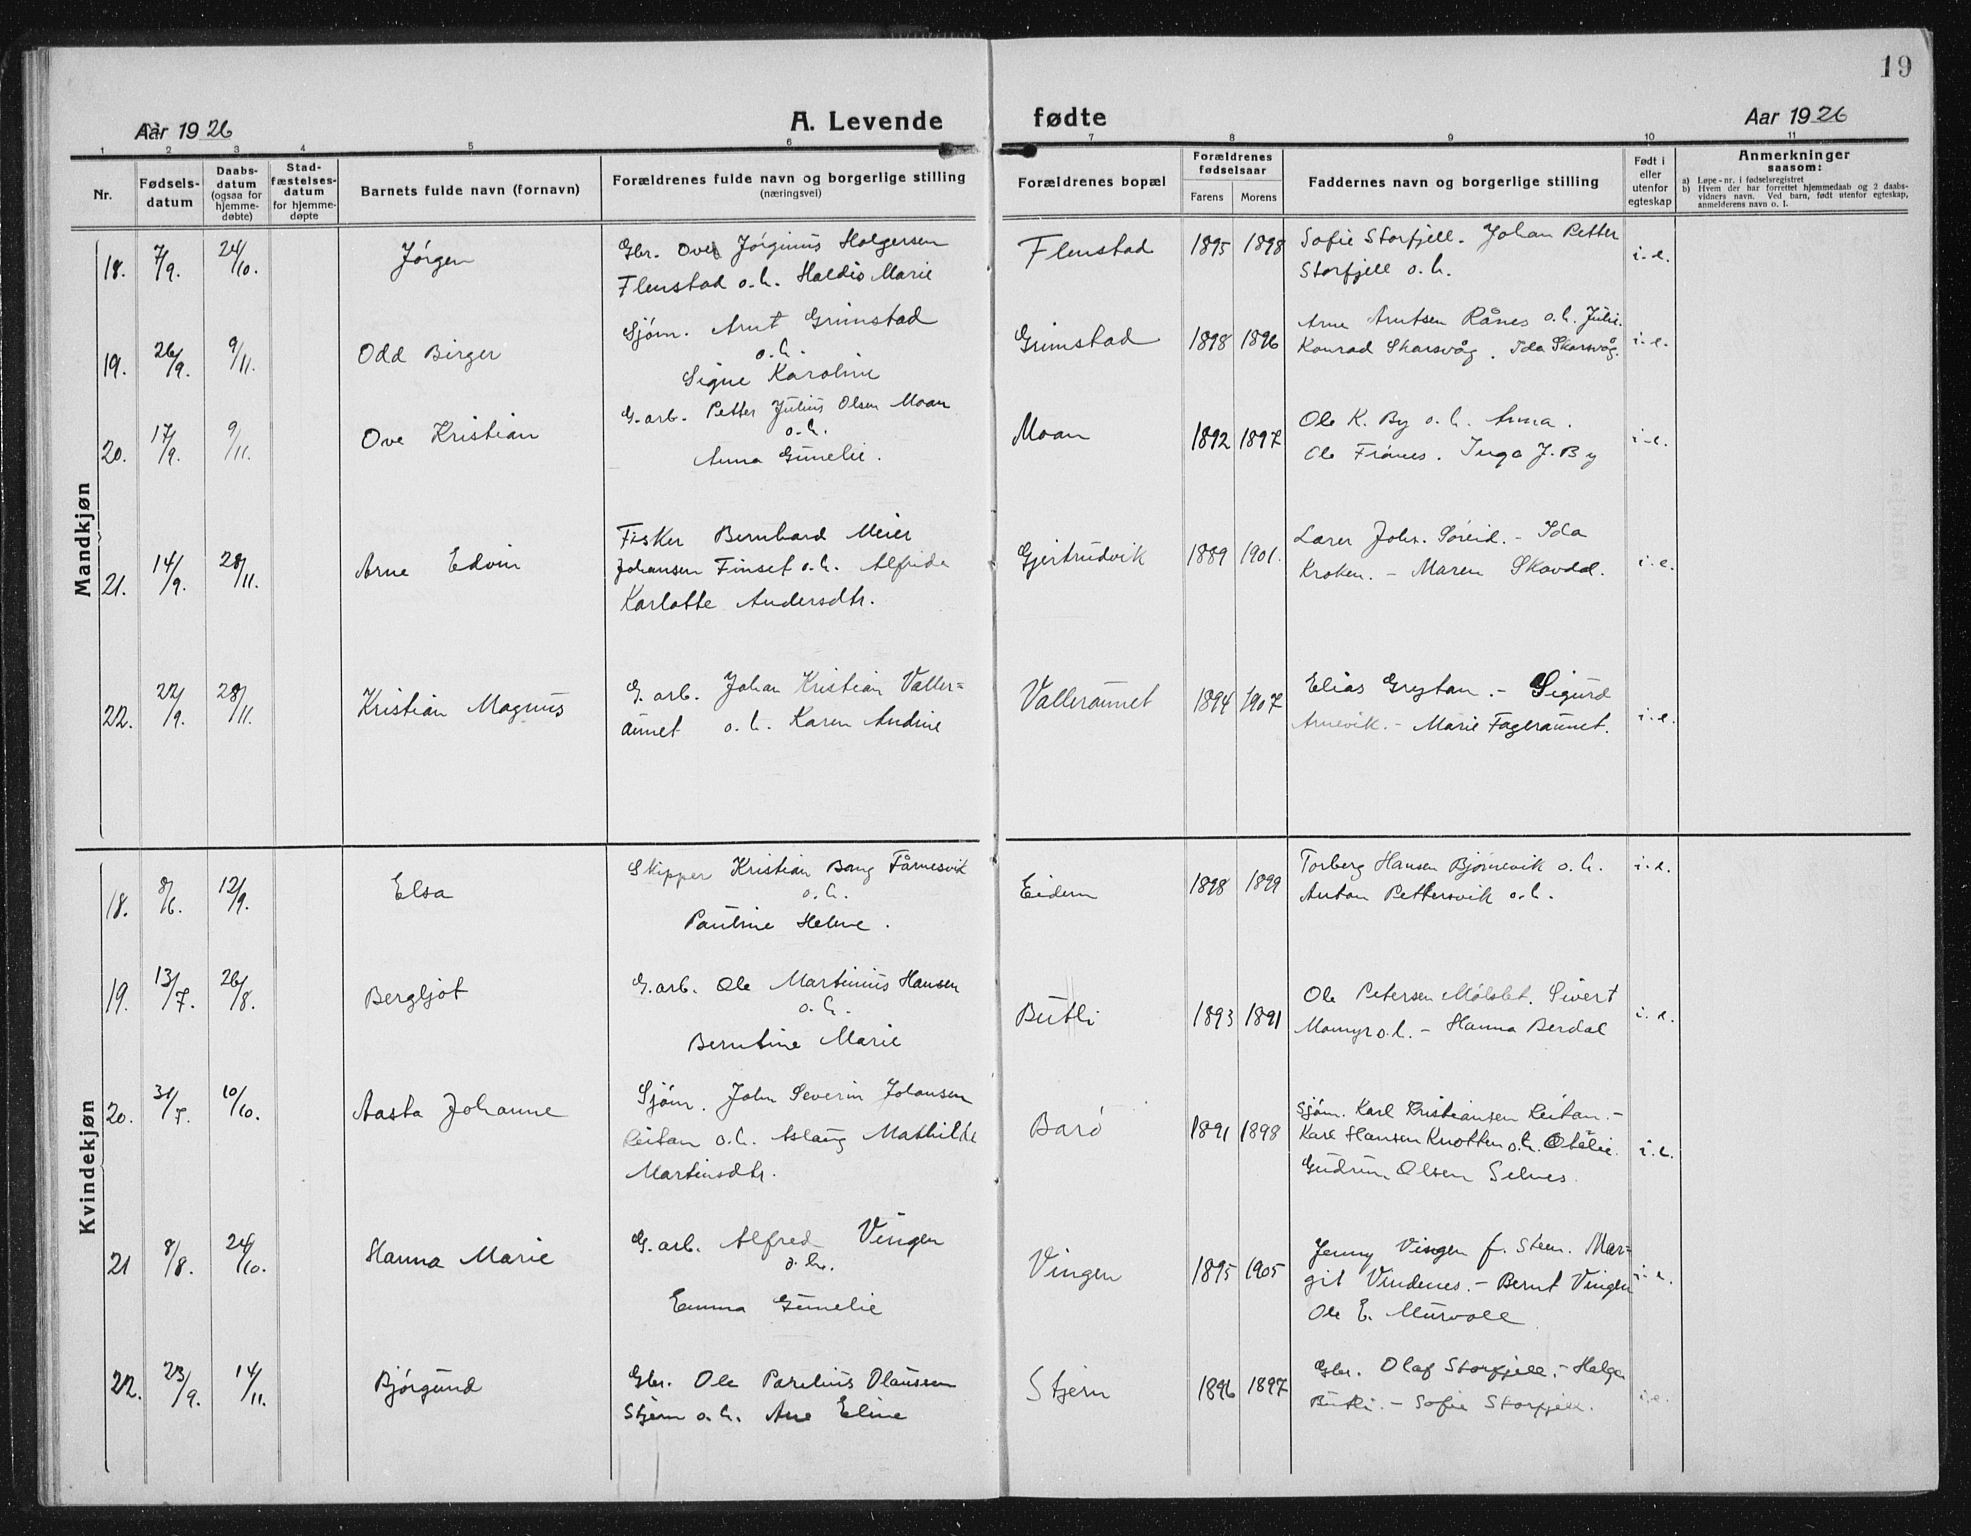 19
Aar 1926
A. Levende fødte
Aar 1926
1 2 3 4 5 6 7 8 9 10 11
Nr.
Fødsels-
datum
Daabs-
datum
(ogsaa for
hjemme-
døbte)
Stad-
fæstelses-
datum
for hjemme-
døpte
Barnets fulde navn (fornavn)
Forældrenes fulde navn og borgerlige stilling
(næringsvei)
Forældrenes bopæl
Forældrenes
fødselsaar
Farens Morens
Faddernes navn og borgerlige stilling
Født i
eller
utenfor
egteskap
Anmerkninger
saasom:
a) Løpe-nr. i fødselsregistret
b) Hvem der har forrettet hjemmedaab og 2 daabs-
vidners navn. Ved barn, født utenfor egteskap,
anmelderens navn o. l.
Mandkjøn
18. 7/9. 24/10. Jørgen
Gbr. Ove Jørginus Holgersen
Flenstad o.h. Haldis Marie
Flenstad 1895 1898
Sofie Storfjell. Johan Petter
Storfjell o.h.
i.e.
19. 26/9. 9/11. Odd Birger
Sjøm. Arnt Grimstad
o.h.
Signe Karoline
Grimstad 1898 1896
Arne Arntsen Rånes o.h. Julie.
Konrad Skarsvåg. Ida Skarsvåg.
i.e.
20. 17/9. 9/11. Ove Kristian
G.arb. Petter Julius Olsen Moan
o.h.
Anna Gunelie.
Moan 1892 1897
Ole K. By o.h. Anna.
Ole Frønes. Inga J. By
i.e.
21. 14/9. 28/11. Arne Edvin
Fisker Bernhard Meier
Johansen Finset o.h. Alfride
Karlotte Andersdtr.
Gjertrudvik 1889 1901.
Lærer Johs. Søreid. - Ida
Kroken. - Maren Skavdal.
i.e.
22. 22/9. 28/11. Kristian Magnus
G. arb. Johan Kristian Valler=
aunet o.h. Karen Andrine
Valleraunet 1894 1907
Elias Grøtan. - Sigurd
Arnevik. - Marie Fageraunet.
i.e.
Kvindekjøn
18. 8/6. 12/9. Elsa
Skipper Kristian Bang Fårnesvik
o.h.
Pauline Helene.
Eidem 1898 1899
Torberg Hansen Bjørnevik o.h.
Anton Pettersvik o.h.
i.e.
19. 13/7. 26/8. Bergljot
G.arb. Ole Martinius Hansen
o.h.
Berntine Marie
Butli 1893 1891
Ole Petersen Mølslet. Sivert
Momyr o.h. - Hanna Berdal
i.e.
20. 31/7. 10/10. Aasta Johanne
Sjøm. John Severin Johansen
Reitan o.h. Aslaug Mathilde
Martinsdtr.
Barø 1891 1898
Sjøm. Karl Kristiansen Reitan. -
Karl Hansen Knotten o.h. Otelie.
Gudrun Olsen Selnes.
i.e.
21 8/8. 24/10. Hanna Marie
G.arb. Alfred Vingen
o.h.
Emma Gunelie
Vingen 1895 1905
Jenny Vingen f. Steen. Mar=
git Vindenes. - Bernt Vingen
Ole E. Murvoll
i.e.
22. 23/9. 14/11. Bjørgund
Gbr. Ole Parelius Olaussen
Stjern o.h. Ane Eline
Stjern 1896 1897
Gbr. Olaf Storfjell. - Helga
Butli. - Sofie Storfjell.
i.e.